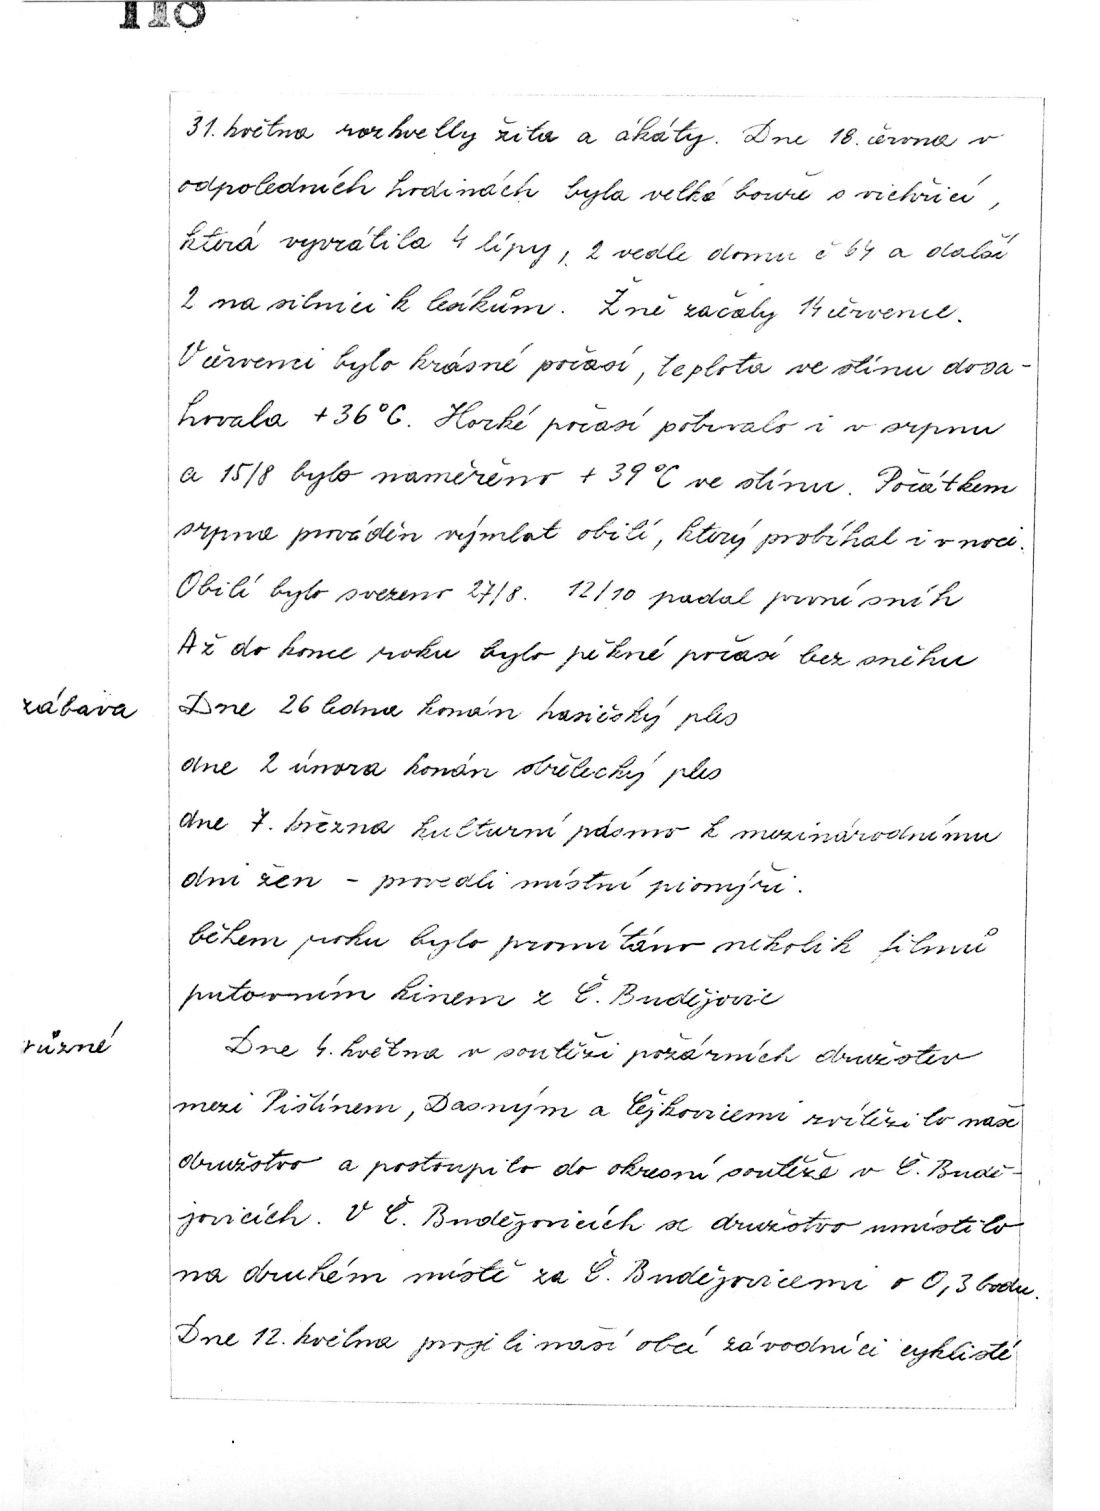 118
31. května rozkvetly žita a akáty. Dne 18. června v
odpoledních hodinách byla velká bouře s vichřicí,
která vyvrátila 4 lípy, 2 vedle domu č 64 a další
2 na silnici k lesíkům. Žně začaly 14 července.
V červenci bylo krásné počasí, teplota ve stínu dosa-
hovala +36°C. Horké počasí potrvalo i v srpnu
a 15/8 bylo naměřeno +39°C ve stínu. Počátkem
srpna prováděn výmlat obilí, který probíhal i v noci.
Obilí bylo svezeno 27/8. 12/10 padal první sníh
Až do konce roku bylo pěkné počasí bez sněhu
zábava
Dne 26 ledna konán hasičský ples
dne 2 února konán střelecký ples
dne 7. března kulturní pásmo k mezinárodnímu
dni žen - provedli místní pionýři.
během roku bylo promítáno několik filmů
putovním kinem z Č. Budějovic
různé
Dne 4. května v soutěži požárních družstev
mezi Pištínem, Dasným a Čejkovicemi zvítězilo naše
družstvo a postoupilo do okresní soutěže v Č. Budě-
jovicích. V Č. Budějovicích se družstvo umístilo
na druhém místě za Č. Budějovicemi o 0,3 bodu.
Dne 12. května projeli naší obcí závodníci cyklisté